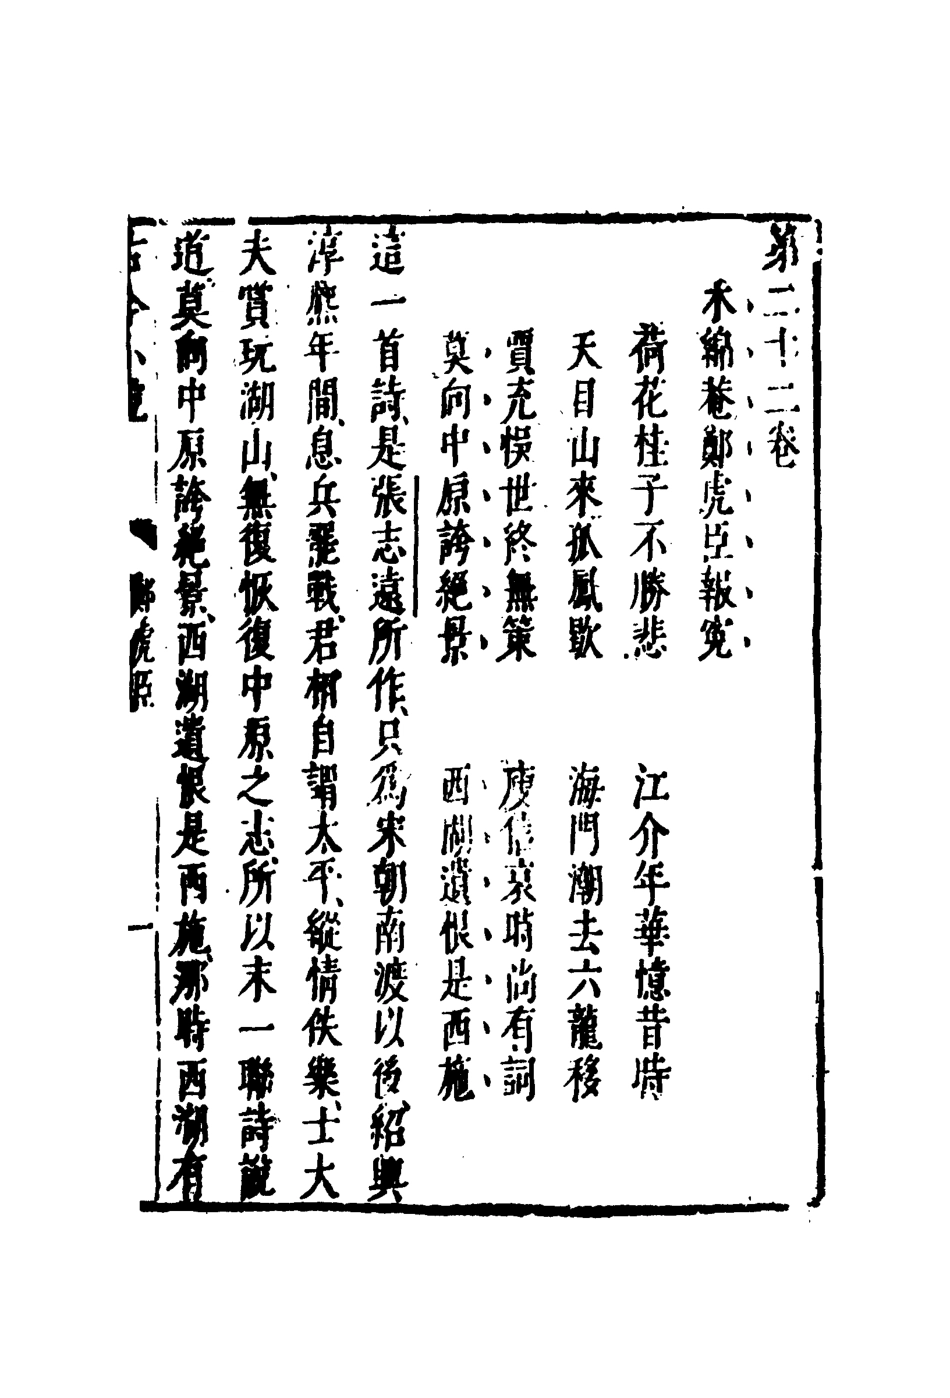 第二十二卷
木綿菴鄭虎臣報寃
荷花桂子不勝悲　江介年華憶昔時
天目山來孤鳳歇　海門潮去六龍移
賈充悞世終無策　庾信哀時尚有詞
莫向中原誇絕景　西湖遺恨是西施
這一首詩、是張志遠所作、只爲宋朝南渡以後、紹興
淳熈年間、息兵罷戰、君相自謂太平、縱情佚樂、士大
夫賞玩湖山、無復恢復中原之志、所以末一聯詩說
道莫向中原誇絕景、西湖遺恨是西施、那時西湖有
古今小說　鄭虎臣　一